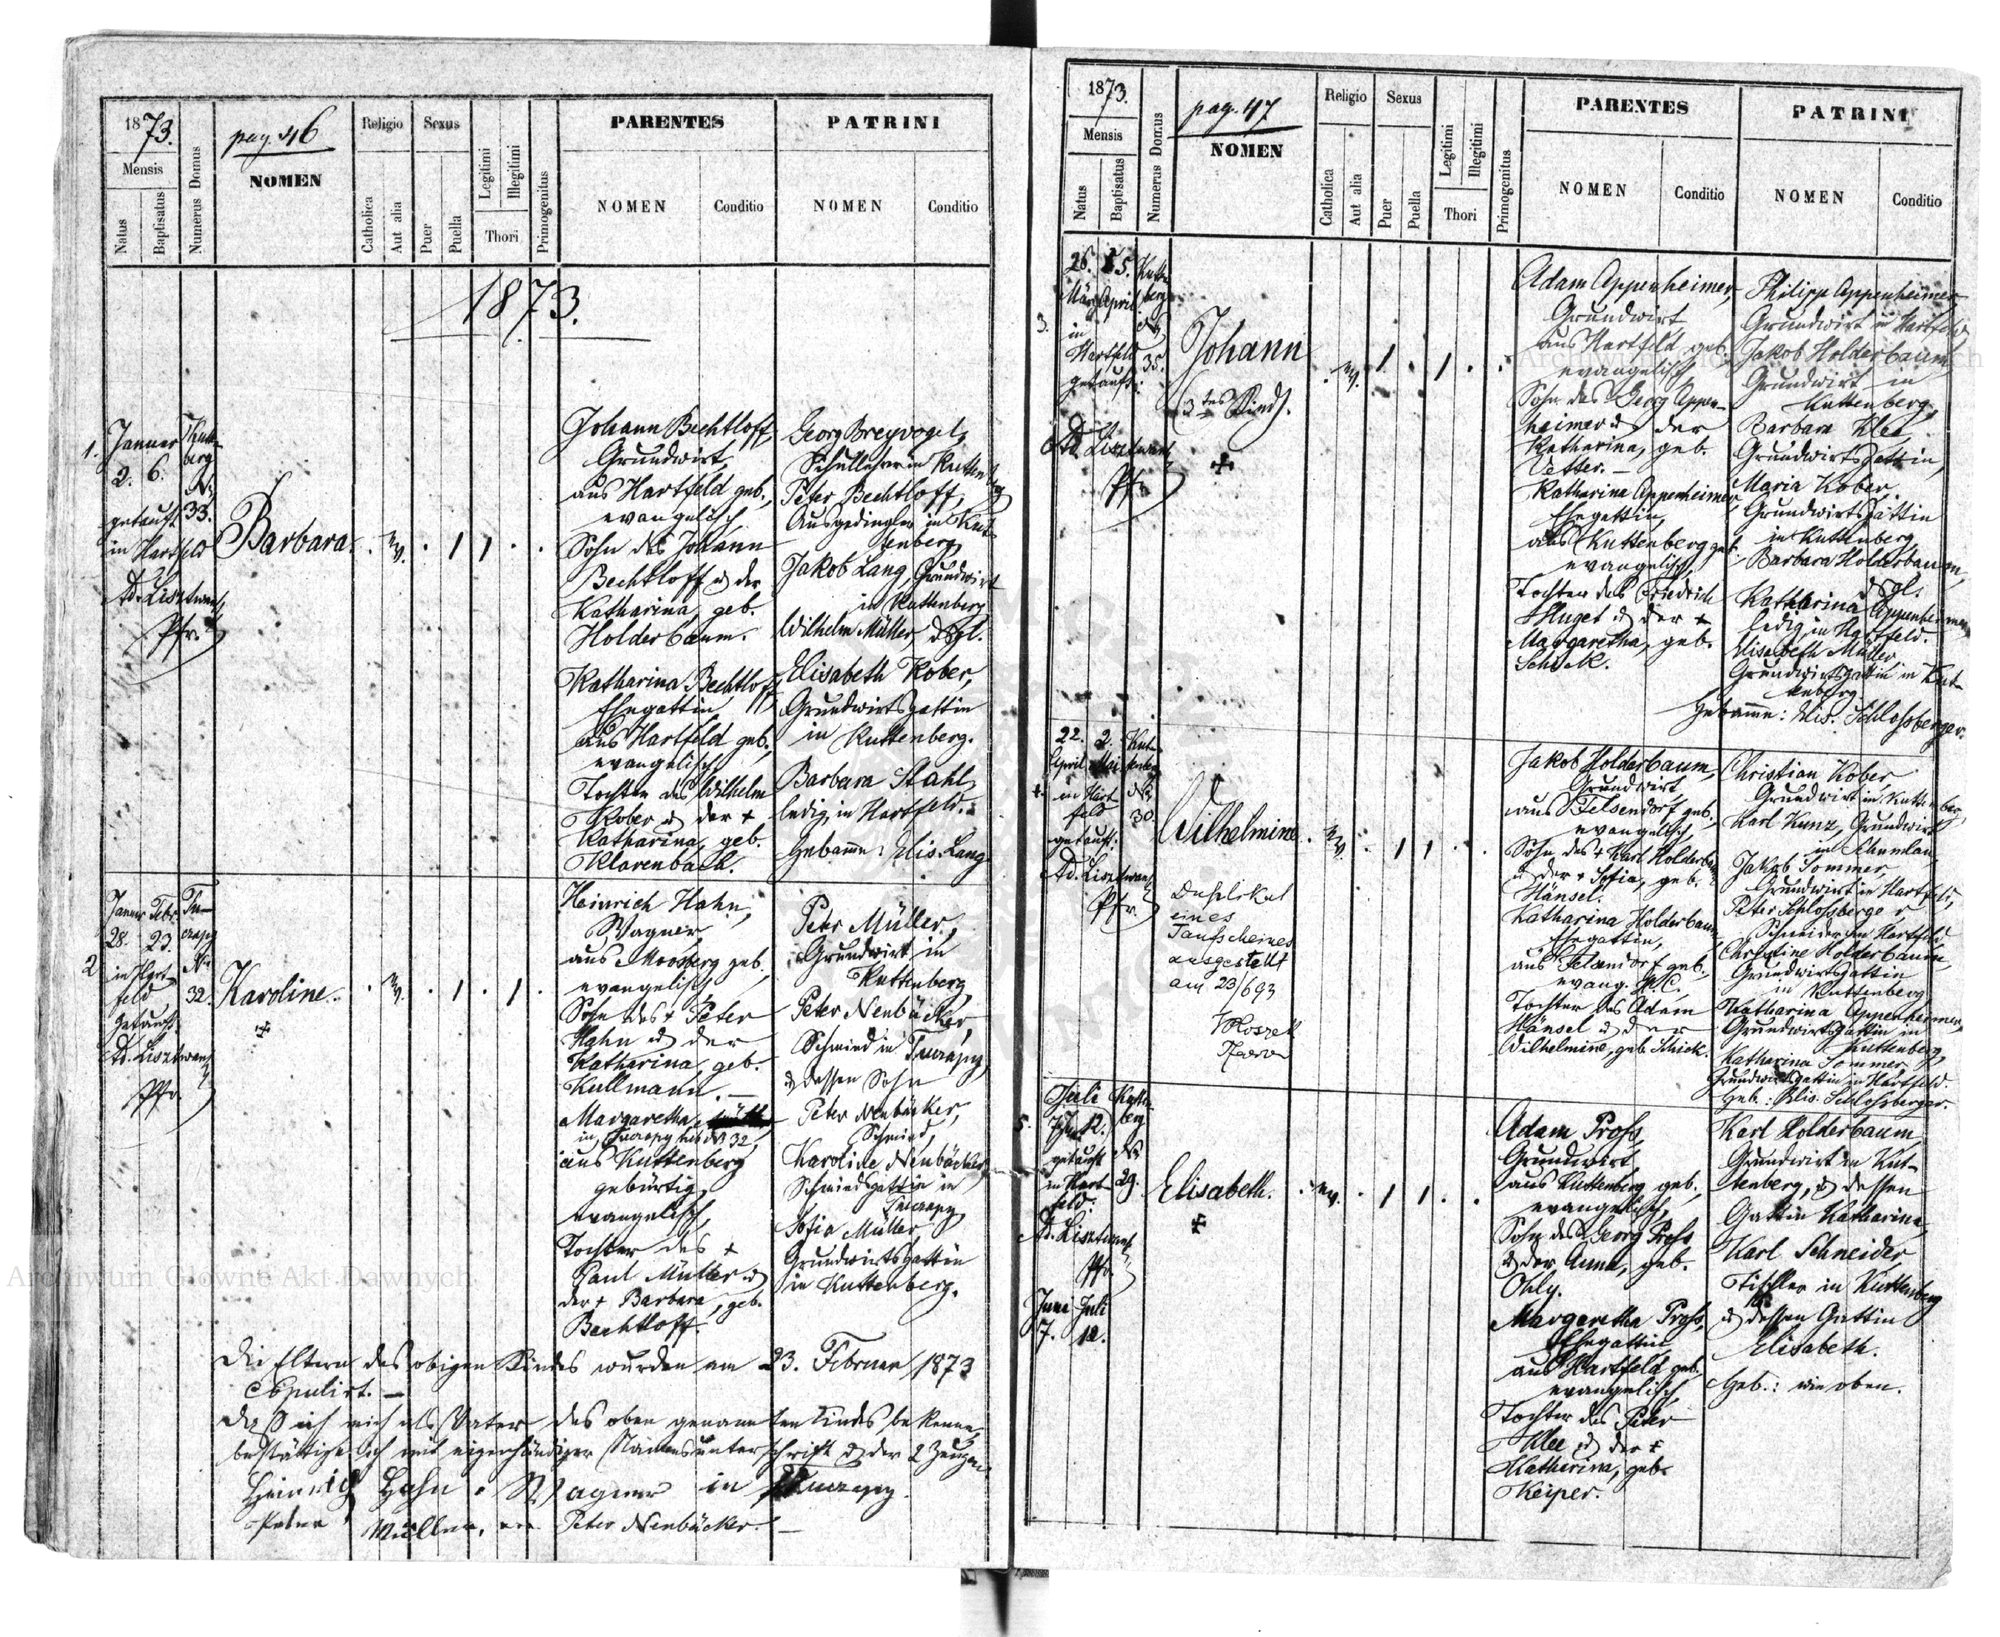 1873.
Mensis
Natus
Baptisatus
Numerus Domus
pag. 46
NOMEN
Religio
Catholica
Aut alia
Sexus
Puer
Puella
Legitimi
Illegitimi
Thori
Primogenitus
PARENTES
NOMEN
Conditio
PATRINI
NOMEN
Conditio
1873.
1.
Januar
2. 6.
getauft
in Hartfeld
Ad. Lisztwan
Pfr.
Kutten-
berg
33.
Barbara.
ev.
Johann Bechtloff,
Grundwirt,
aus Hartfeld geb.,
evangelisch
Sohn des Johann
Bechtloff u der
Katharina, geb.
Holderbaum.
Katharina Bechtloff
Ehegattin
aus Hartfeld geb.,
evangelisch
Tochter des Wilhelm
Kober u der +
Katharina, geb.
Klarenbach.
Georg Breyvogel,
Schullehrer in Kuttenberg
Peter Bechtloff,
Ausgedingler in Kut-
tenberg
Jakob Lang, Grundwirt
in Kuttenberg
Wilhelm Müller, dsgl.
Elisabeth Kober,
Grundwirtsgattin
in Kuttenberg.
Barbara Stahl
ledig, in Hartfeld.
Hebamme: Elis. Lang
2
Januar Febr.
28. 23.
in Hart-
feld
getauft
Ad. Lisztwan
Pfr.
32.
Karoline.
ev.
Heinrich Hahn,
Wagner,
aus Moosberg geb.,
evangelisch,
Sohn des + Peter
Hahn u der
Katharina, geb.
Kullmann.
Margaretha
in Tuczapy 32,
aus Kuttenberg
gebürtig,
evangelisch,
Tochter des +
Paul Müller u
der + Barbara, geb.
Bechtloff.
Peter Müller,
Grundwirt in
Kuttenberg
Peter Neubäcker,
Schmied in Tuczapy,
u dessen Sohn
Peter Neubäcker,
Schmied,
Karoline Neubäcker,
Schmiedsgattin in
Tuczapy
Sofia Müller,
Grundwirtsgattin
in Kuttenberg.
Die Eltern des obigen Kindes wurden am 23. Februar 1873
copulirt. —
Daß ich mich als Vater des oben genannten Kindes bekenne,
bestättige ich mit eigenhändiger Namensunterschrift u der 2 Zeugen
Heinrich Hahn Wagner in Tuczapy.
Peter Müller, Peter Neubäcker. —
1873.
Mensis
Natus
Baptisatus
Numerus Domus
pag. 47
NOMEN
Religio
Catholica
Aut alia
Sexus
Puer
Puella
Legitimi
Illegitimi
Thori
Primogenitus
PARENTES
NOMEN
Conditio
PATRINI
NOMEN
Conditio
3.
26.
März April
in
Hartfeld
getauft:
Ad. Lisztwan
Pfr.
35.
Johann
(3tes Kind).
ev.
Adam Appenheimer,
Grundwirt
aus Hartfeld geb.
evangelisch
Sohn des Georg Appen-
heimer u der
Katharina, geb.
Vetter. —
Katharina Appenheimer,
Ehegattin,
aus Kuttenberg geb.
evangelisch,
Tochter des Friedrich
Huget u der +
Margaretha, geb.
Schick.
Philipp Appenheimer,
Grundwirt in Hartfeld,
Jakob Holderbaum,
Grundwirt in
Kuttenberg,
Barbara Klee
Grundwirtsgattin,
Maria Kober,
Grundwirtsgattin
in Kuttenberg
Barbara Holderbaum,
dsgl.
Katharina Appenheimer
ledig, in Hartfeld.
Elisabeth Müller
Grundwirtsgattin in Kut-
tenberg.
Hebamme: Elis. Schlossberger.
22. 2.
April Mai
in Hart-
feld
getauft:
Ad. Lisztwan
Pfr.
Kut-
tenberg
30.
Wilhelmine
ev.
Duplikat
eines
Taufscheines
ausgestellt
am 23/6 93
Jakob Holderbaum,
Grundwirt
aus Felsendorf geb.,
evangelisch,
Sohn des + Karl Holderbaum
u der + Sofia, geb.
Hänsel.
Katharina Holderbaum
Ehegattin,
aus Felsendorf geb.,
evang. H.C.,
Tochter des Adam
Hänsel u der
Wilhelmine, geb. Schick.
Christian Kober,
Grundwirt in Kuttenberg,
Karl Kunz, Grundwirt
in Schumlau,
Jakob Sommer,
Grundwirt in Hartfeld,
Peter Schlossberger
Schneider in Hartfeld,
Christine Holderbaum,
Grundwirtsgattin
in Kuttenberg
Katharina Appenheimer,
Grundwirtsgattin in
Kuttenberg,
Katharina Sommer,
Grundwirtsgattin in Hartfeld.
Heb.: Elis. Schlossberger.
5.
Juli
12.
getauft
in Hart-
feld:
Ad. Lisztwan
Pfr.
Juni Juli
7. 12.
29.
Elisabeth.
ev.
Adam Pross,
Grundwirt
aus Kuttenberg geb.,
evangelisch,
Sohn des Georg Pross
u der Anna, geb.
Ohly.
Margaretha Pross,
Ehegattin
aus Hartfeld geb.
evangelisch
Tochter des Peter
Klee u der +
Katharina, geb.
Keiper.
Karl Holderbaum,
Grundwirt in Kut-
tenberg, u dessen
Gattin Katharina,
Karl Schneider,
Tischler in Kuttenberg
u dessen Gattin
Elisabeth.
Heb.: wie oben.
Archiwum Główne Akt Dawnych